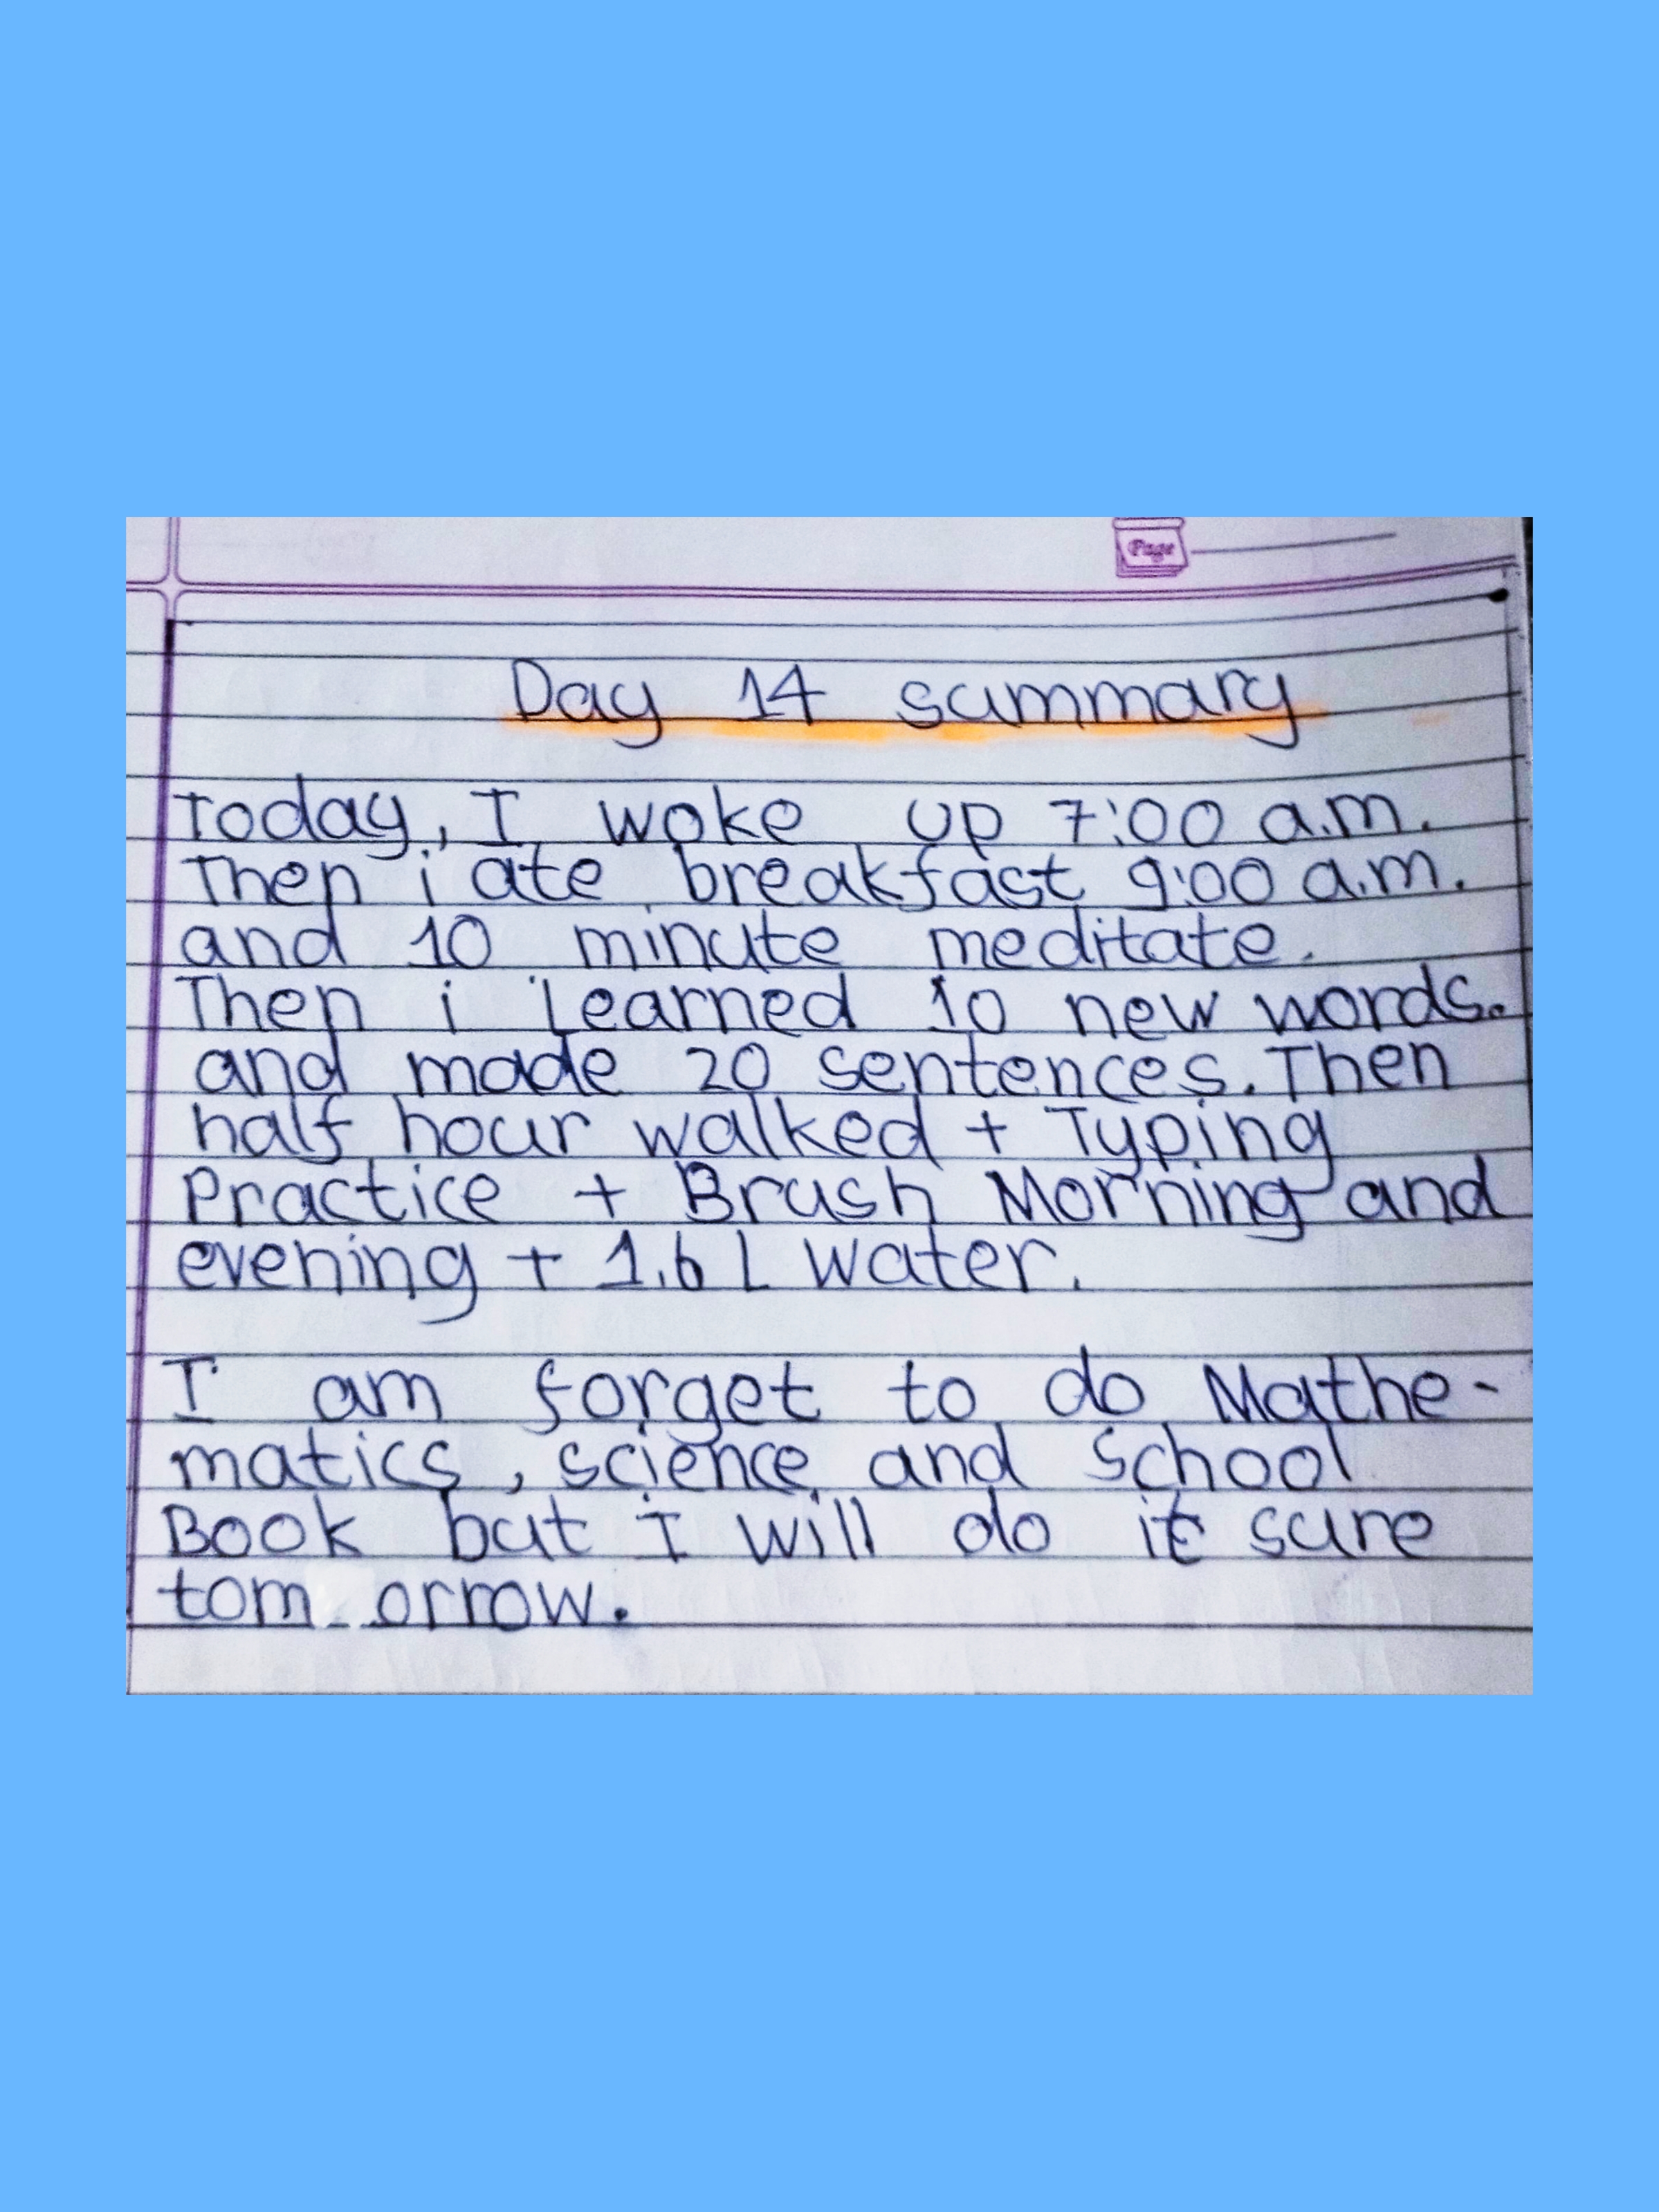 Page
Day 14 summary
Today, I woke up 7:00 a.m.
Then i ate breakfast 9:00 a.m.
and 10 minute meditate.
Then i learned 10 new words.
and made 20 sentences. Then
half hour walked + Typing
Practice + Brush Morning and
evening + 1.6 L water.
I am forget to do Mathe-
matics, science and School
Book but I will do it sure
tom orrow.